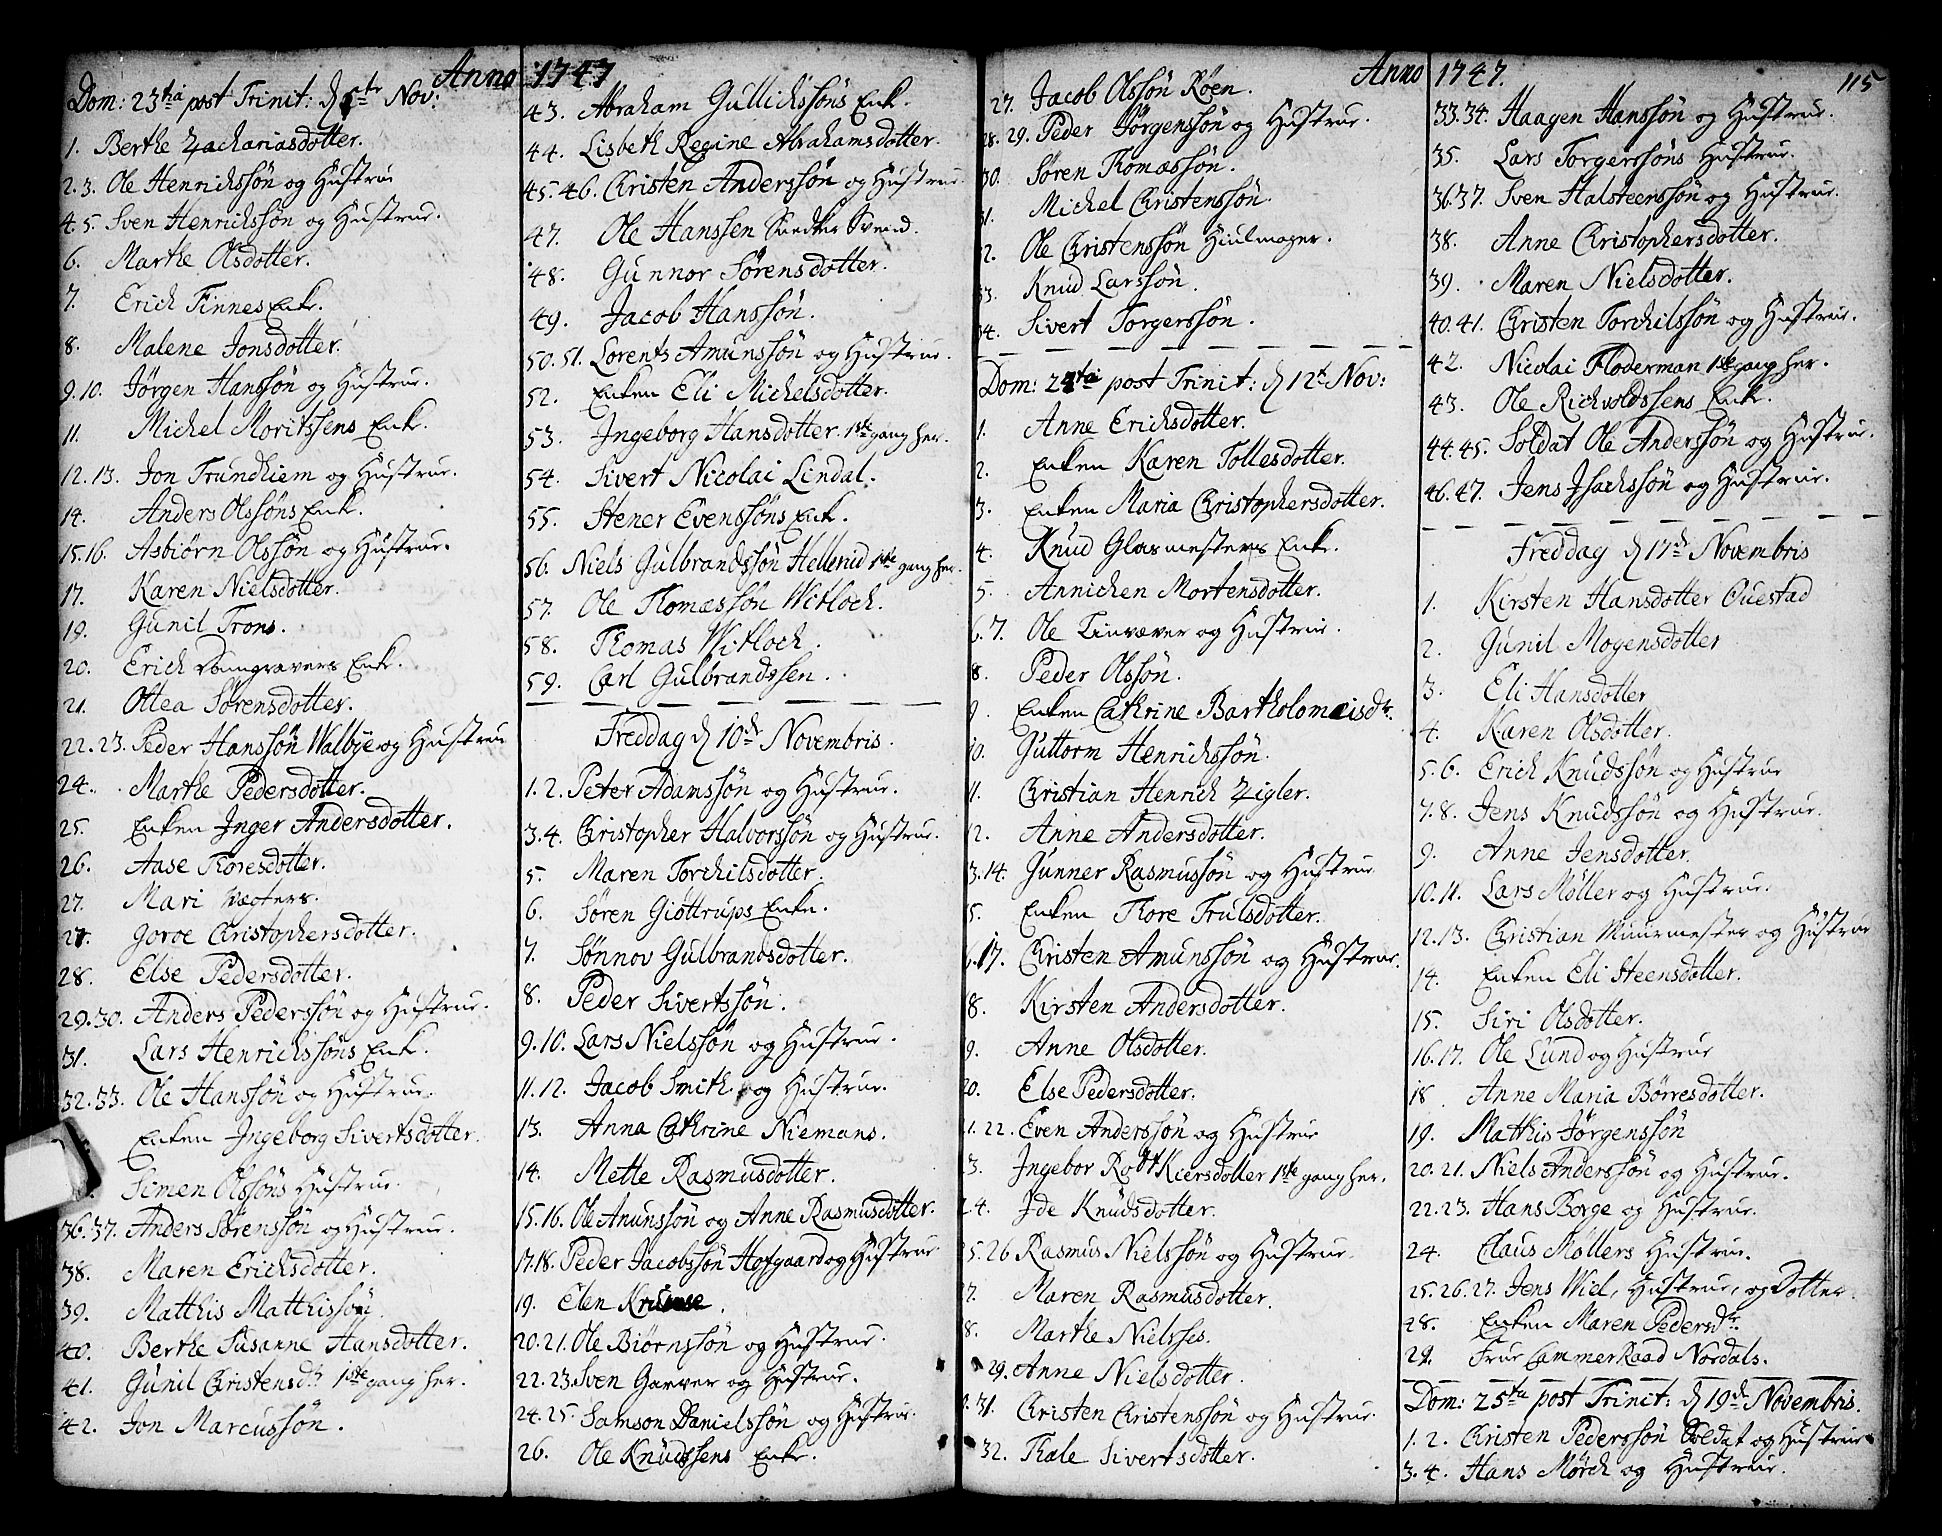 Anno 1747
Dom: 23tiâ post Trinit: d 5te Nov:
1. Berthe Zachariasdotter.
2. 3. Ole Henrichssøn og Hustrue
4. 5. Sven Henrichssøn og Hustrue.
6. Marthe Olsdotter.
7. Erich Finnes Enk.
8. Malene Jonsdotter.
9. 10. Jørgen Hanssøn og Hustrue.
11. Michel Moritssens Enk.
12. 13. Jon Trundhiem og Hustrue.
14. Anders Olssøns Enk.
15. 16. Asbiørn Olssøn og Hustrue.
17. Karen Nielsdotter.
19. Gunil Trons.
20. Erich Domgravers Enk.
21. Ottea Sørensdotter.
22. 23. Peder Hanssøn Walbye og Hustrue
24. Marthe Pedersdotter.
25. Enken Inger Andersdotter.
26. Aase Thoresdotter.
27. Mari Vægters.
27. Goroe Christophersdotter.
28. Else Pedersdotter.
29. 30. Anders Pederssøn og Hustrue.
31. Lars Henrichssøns Enk.
32. 33. Ole Hanssøn og Hustrue.
Enken Ingeborg Sivertsdotter.
Simen Olssøns Hustrue.
36. 37. Anders Sørenssøn og Hustrue.
38. Maren Erichsdotter.
39. Matthis Matthissøn
40. Berthe Susanne Hansdotter.
41. Gunil Christensdr 1ste gang her.
42. Jon Marcussøn.
43. Abraham Gullichssøns Enk.
44. Lisbeth Regine Abrahamsdotter.
45. 46. Christen Anderssøn og Hustrue
47. Ole Hanssen Snedker Svend.
48. Gunnor Sørensdotter.
49. Jacob Hanssøn.
50. 51. Lorents Amunssøn og Hustrue.
52. Enken Eli Michelsdotter.
53. Ingeborg Hansdotter. 1ste gang her.
54. Sivert Nicolai Lindal.
55. Stener Evenssøns Enk.
56. Niels Gulbrandssøn Hellerud 1ste gang her.
57. Ole Thomæssøn Witloch.
58. Thomas Witloch.
59. Carl Gulbrandssen.
Freddag d 10de Novembris.
1. 2. Peter Adamssøn og Hustrue.
3. 4. Christopher Halvorssøn og Hustrue.
5. Maren Torchilsdotter.
6. Søren Giøttrups Enke.
7. Sønnov Gulbrandsdotter.
8. Peder Sivertssøn.
9. 10. Lars Nielssøn og Hustrue.
11. 12. Jacob Smith og Hustrue.
13. Anna Cathrine Niemans.
14. Mette Rasmusdotter.
15. 16. Ole Anunssøn og Anne Rasmusdotter.
17. 18. Peder Jacobssøn Hofgaard og Hustrue
19. Elen Kruuse.
20. 21. Ole Biørnssøn og Hustrue.
22. 23. Sven Garver og Hustrue.
24. 25. Samson Danielssøn og Hustrue.
26. Ole Knudssens Enke.
Anno 1747. 115
27. Jacob Olssøn Røen.
28. 29. Peder Jørgenssøn og Hustrue.
30. Søren Thomæssøn.
31. Michel Christenssøn.
32. Ole Christenssøn Hiulmager.
33. Knud Larssøn.
34. Sivert Torgerssøn.
Dom: 24tâ post Trinit: d 12te Nov:
1. Anne Erichsdotter.
2. Enken Karen Tollesdotter.
3. Enken Maria Christophersdotter.
4. Knud Glasmesters Enk.
5. Annichen Mortensdotter.
6. 7. Ole Linvæver og Hustrue.
8. Peder Olssøn.
9. Enken Cathrine Bartholomæisdr.
10. Guttorm Henrichssøn.
11. Christian Henrich Zigler.
12. Anne Andersdotter.
13. 14. Gunner Rasmussøn og Hustrue
15. Enken Thore Trulsdotter.
16. 17. Christen Amunssøn og Hustrue.
18. Kirsten Andersdotter.
19. Anne Olsdotter.
20. Else Pedersdotter.
21. 22. Even Anderssøn og Hustrue
23. Ingebor Kiersdotter 1ste gang her.
24. Ide Knudsdotter.
25. 26 Rasmus Nielssøn og Hustrue.
27. Maren Rasmusdotter.
28. Marthe Nielsses.
29. Anne Nielsdotter.
30. 31. Christen Christenssøn og Hustrue.
32. Thale Sivertsdotter.
33. 34. Haagen Hanssøn og Hustrue.
35. Lars Torgerssøns Hustrue.
36. 37. Sven Halsteenssøn og Hustrue.
38. Anne Christophersdotter.
39. Maren Nielsdotter.
40. 41. Christen Torchilssøn og Hustrue.
42. Nicolai Floderman 1ste gang her.
43. Ole Richvoldssens Enk.
44. 45. Soldat Ole Anderssøn og Hustrue.
46. 47. Jens Isachssøn og Hustrue.
Freddag d 17de Novembris
1. Kirsten Hansdotter Ouestad
2. Gunil Mogensdotter
3. Eli Hansdotter
4. Karen Olsdotter.
5. 6. Erich Knudssøn og Hustrue
7. 8. Jens Knudssøn og Hustrue.
9. Anne Jensdotter.
10. 11. Lars Møller og Hustrue.
12. 13. Christian Muurmester og Hustrue
14. Enken Eli Steensdotter.
15. Siri Olsdotter.
16. 17. Ole Lund og Hustrue
18. Anne Maria Børresdotter.
19. Matthis Jørgenssøn
20. 21. Niels Anderssøn og Hustrue.
22. 23. Hans Borge og Hustrue.
24. Claus Møllers Hustrue.
25. 26. 27. Jens Wiel, Hustrue, og Dotter.
28. Enken Maren Pedersdr.
29. Frue Cammerraad Nordals.
Dom: 25ta post Trinit: d 19de Novembris.
1. 2. Christen Pederssøn Soldat og Hustrue
3. 4. Hans Mørch og Hustrue.